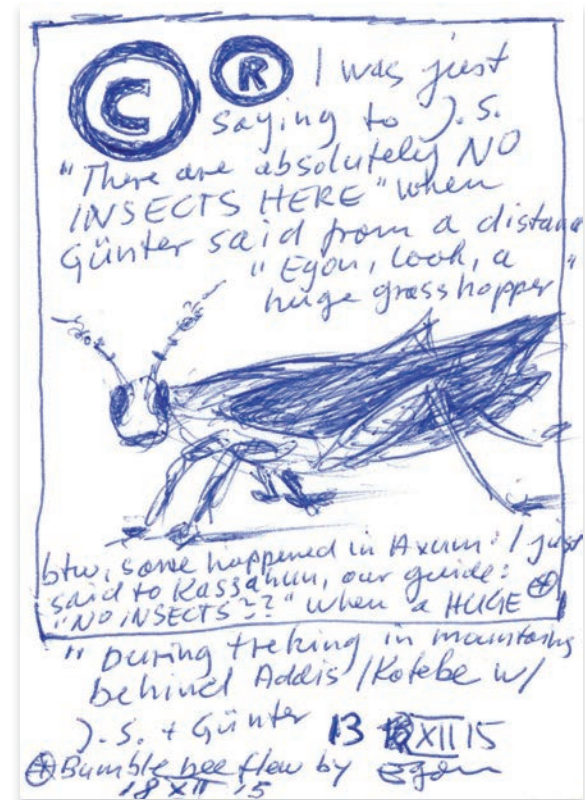 C R I was just
saying to J. S.
"There are absolutely NO
INSECTS HERE" when
Günter said from a distance
"Egon, look, a
huge grasshopper"
btw, same happened in Axum: I just
said to Kassahun, our guide:
"NO INSECTS??" when a HUGE ⊕
" During treking in mountains
behind Addis / Kotebe w/
J. S. + Günter 13 XII 15
⊕ Bumble bee flew by Egon
18 XII 15